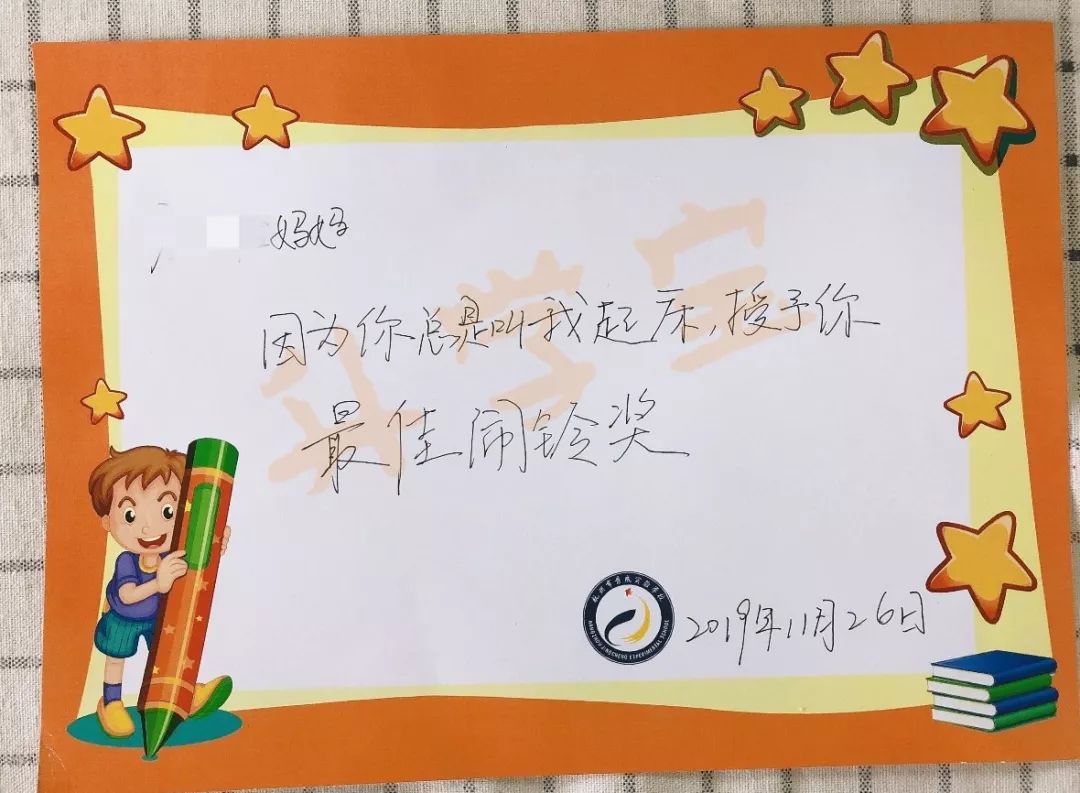 妈妈
因为你总是叫我起床,授予你
最佳闹铃奖
HANGZHOU JINGCHENG EXPERIMENTAL SCHOOL
2019年11月26日